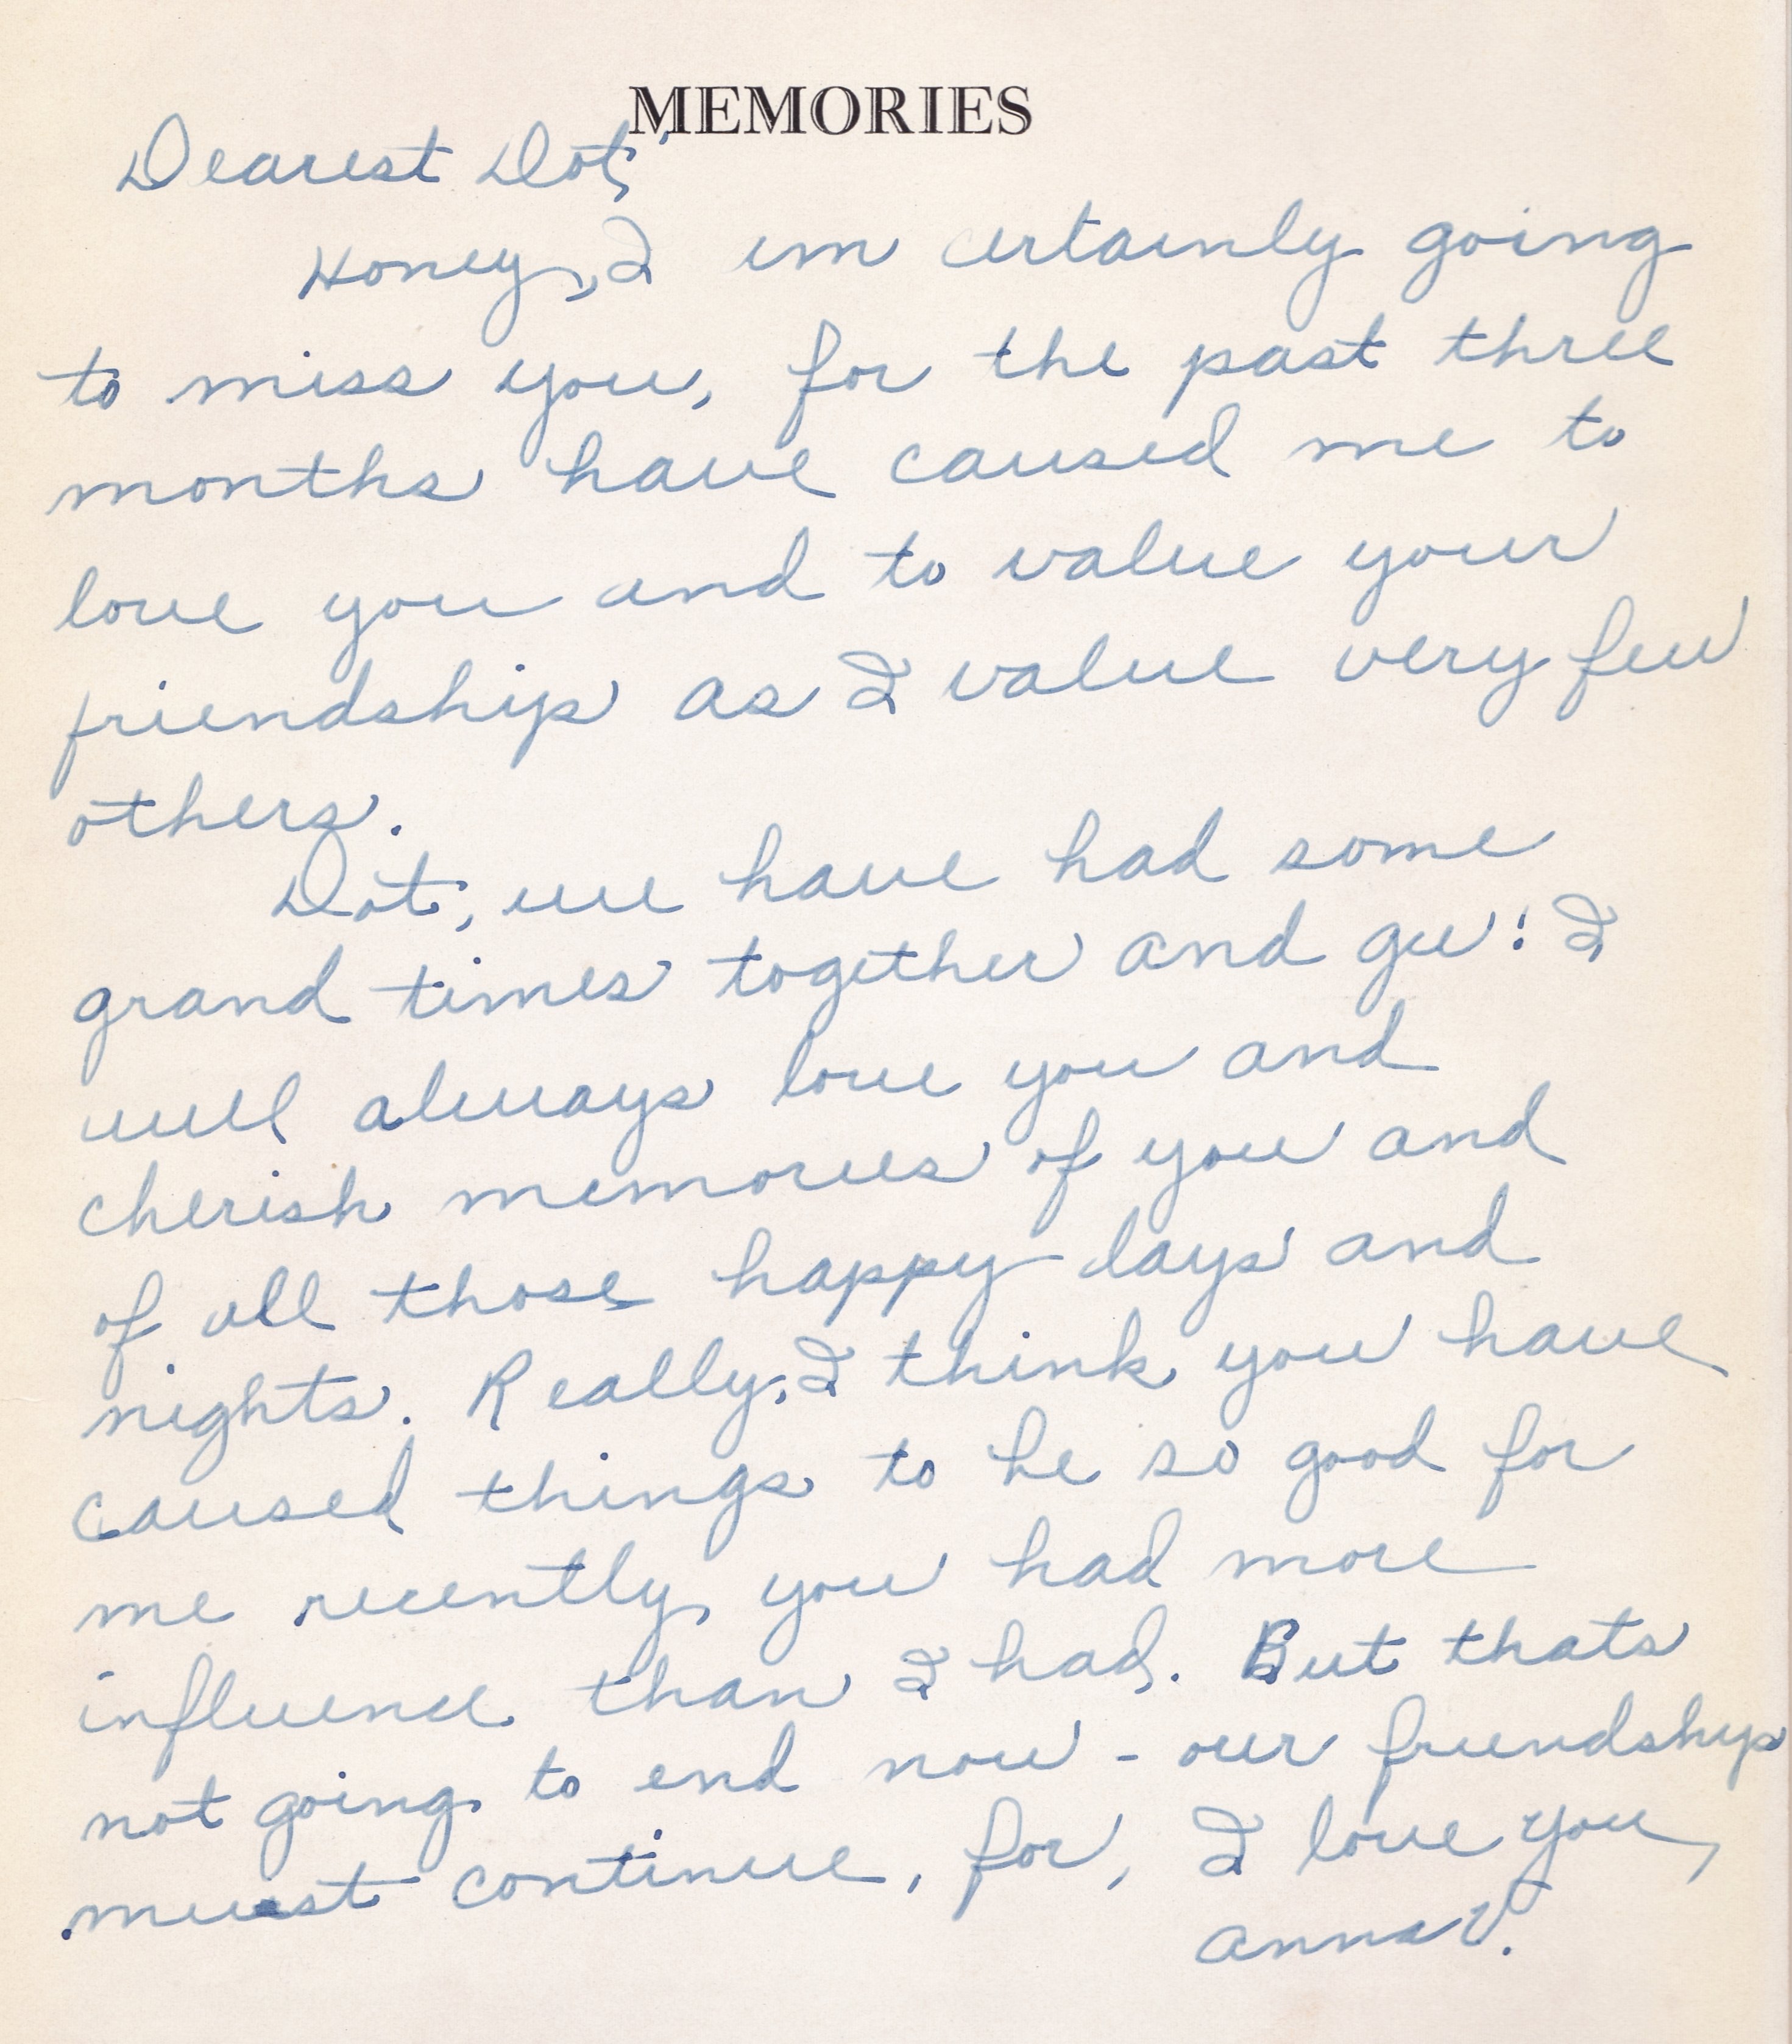 MEMORIES
Dearest Dot,
Honey, I am certainly going
to miss you, for the past three
months have caused me to
love you and to value your
friendship as I value very few
others.
Dot, we have had some
grand times together and gee! I
will always love you and
cherish memories of you and
of all those happy days and
nights. Really, I think you have
caused things to be so good for
me recently, you had more
influence than I had. But thats
not going to end now - our friendship
must continue, for, I love you,
Anna V.